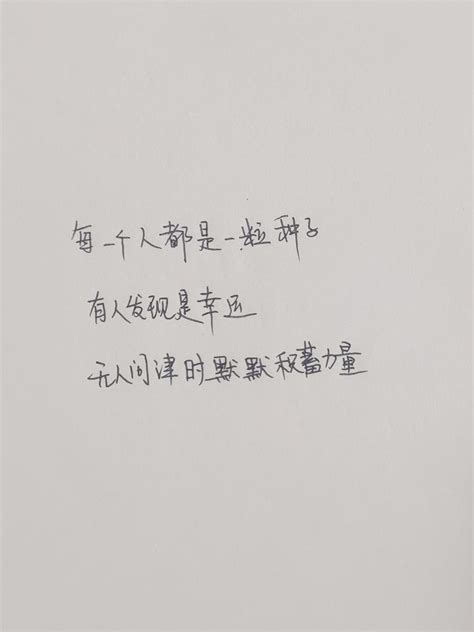 每一个人都是一粒种子
有人发现是幸运
无人问津时默默积蓄力量